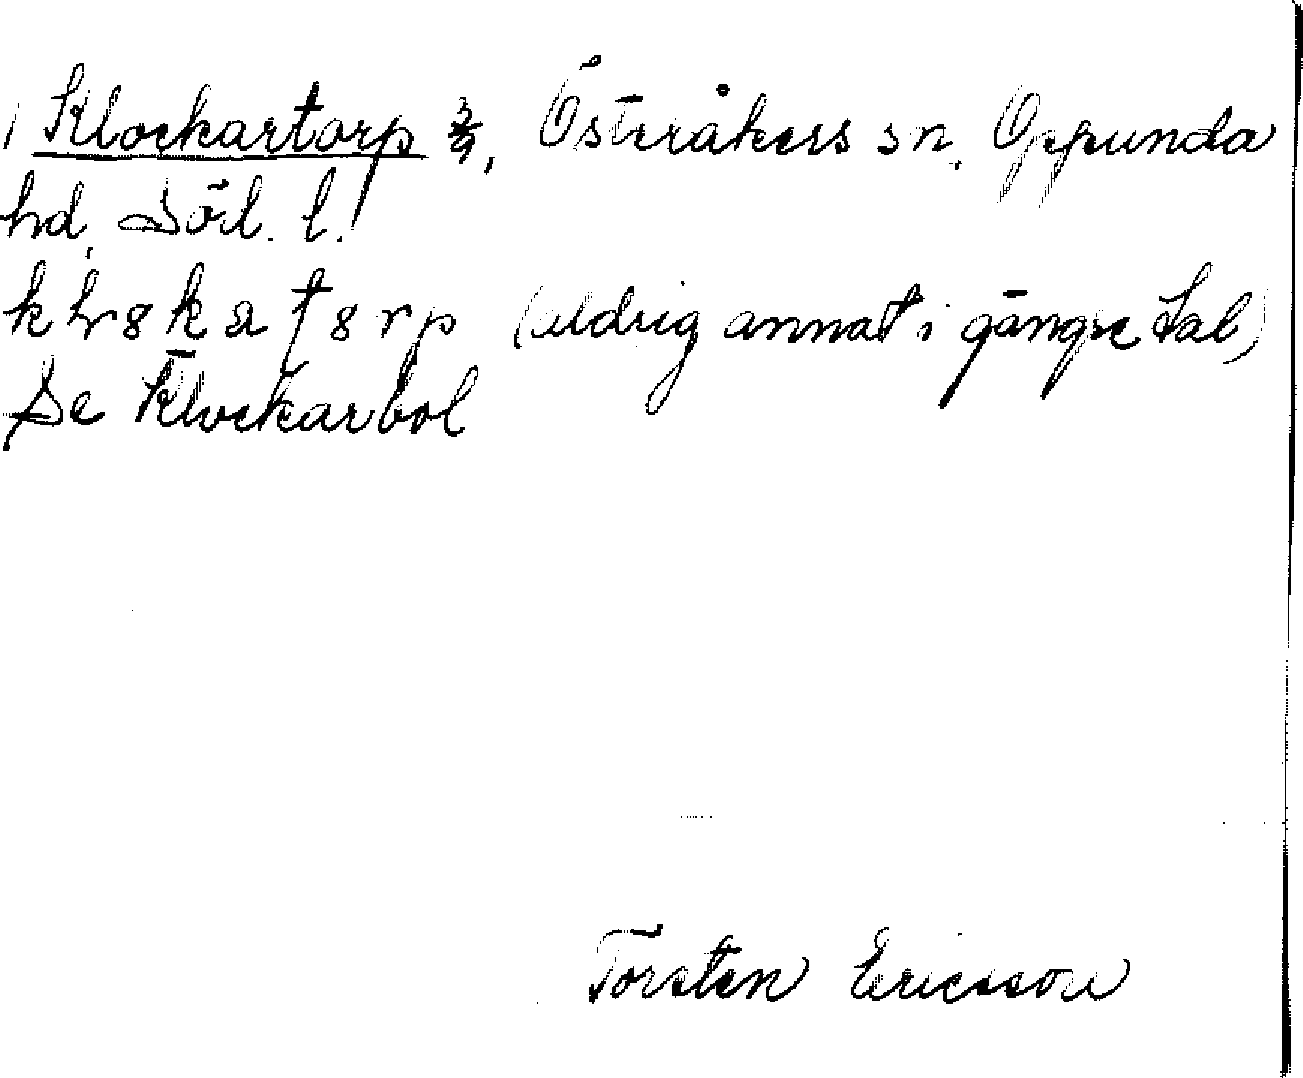 Klockartorp 3/4, Österåkers sn, Oppunda
hd, Söd. l.
(aldrig annat i gängse tal)
Se Klockarbol
Torsten Ericsson